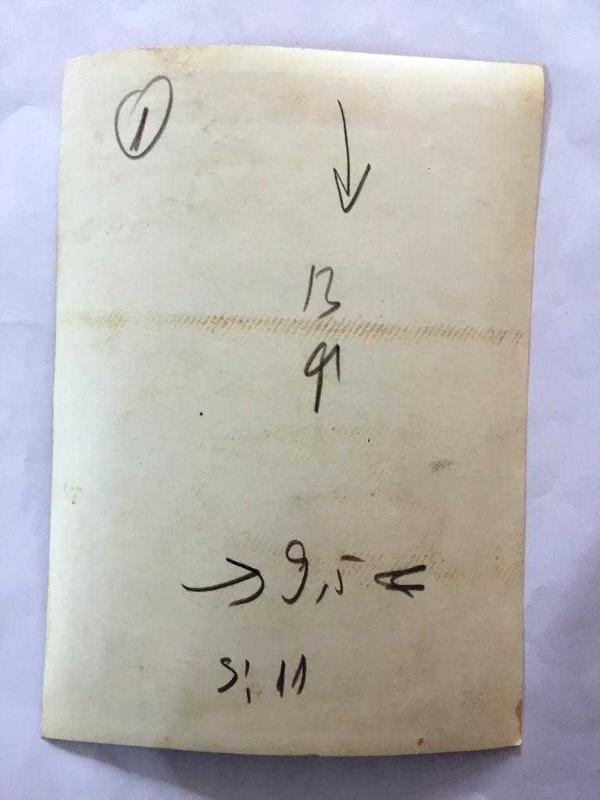 1
13
91
→ 9,5 ←
S; 11